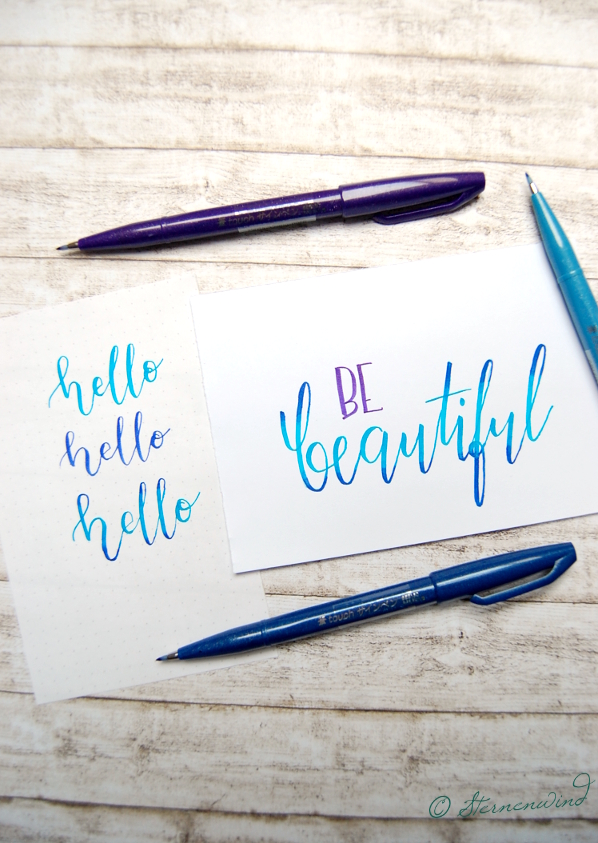 hello
hello
hello
BE
beautiful
touch サインペン
© Sternenwind